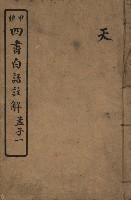 天
四書白話註解孟子一